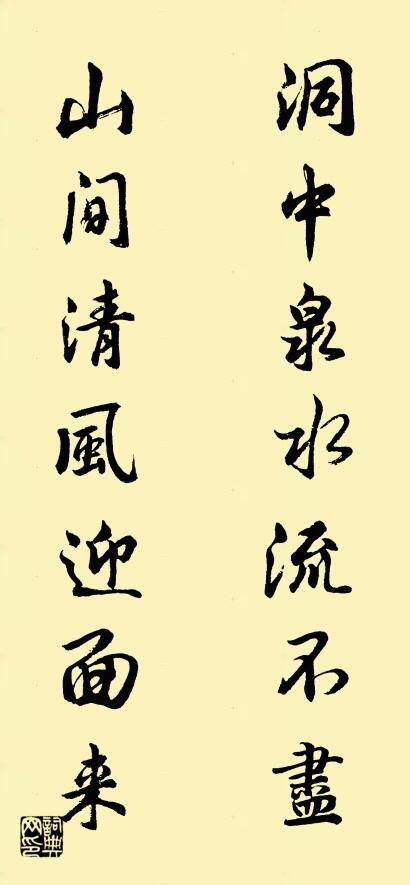 洞中泉水流不盡
山間清風迎面来
詞典网印